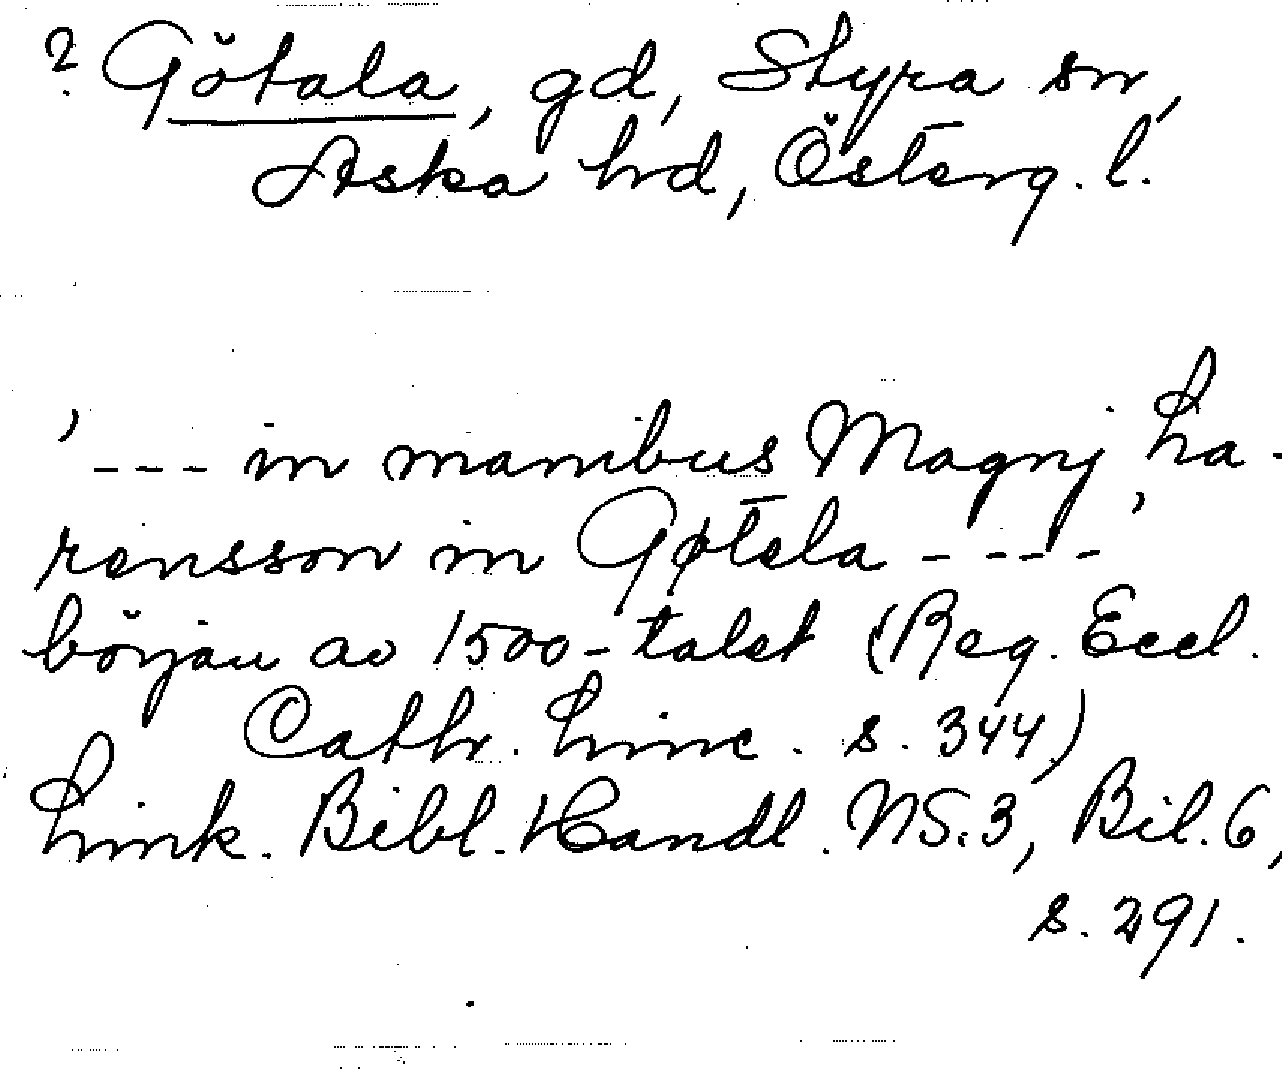 ? Götala, gd, Styra sn,
Aska hd, Österg. l.
' --- in manibus Magnj La-
rensson in Gøtala ---- '
början av 1500-talet (Reg. Eccl.
Cathr. Linc. s. 344)
Link. Bibl. Handl. NS:3, Bil. 6,
s. 291.